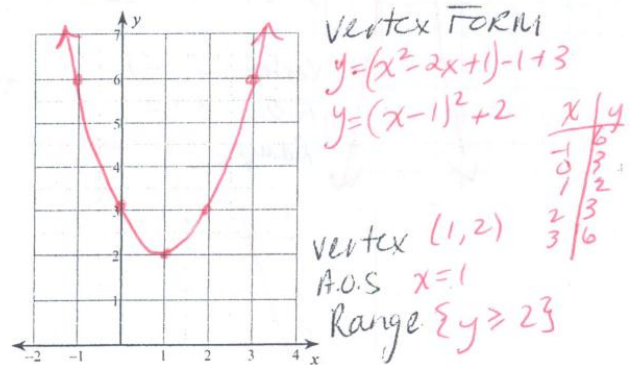 y
7
6
5
4
3
2
1
-2 -1 0 1 2 3 4 x
Vertex FORM
y=(x²-2x+1)-1+3
y=(x-1)²+2
x | y
-1 | 6
0 | 3
1 | 2
2 | 3
3 | 6
vertex (1,2)
A.O.S x=1
Range {y≥2}